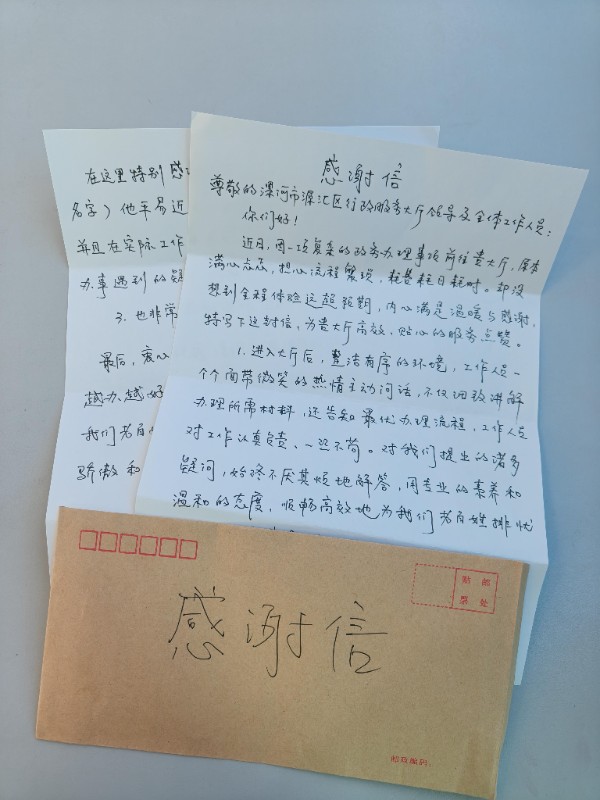 感谢信
尊敬的漯河市源汇区行政服务大厅领导及全体工作人员：
你们好！
近日，因一项复杂的政务办理事项前往贵大厅，原本
满心忐忑，担心流程繁琐，耗费耗日耗时，却没
想到全程体验远超预期，内心满是温暖与感谢，
特写下这封信，为贵大厅高效、贴心的服务点赞。
1.进入大厅后，整洁有序的环境，工作人员一
个个面带微笑的热情主动问话，不仅细致讲解
办理所需材料，还告知最优办理流程，工作人员
对工作认真负责、一丝不苟。对我们提出的诸多
疑问，始终不厌其烦地解答，用专业的素养和
温和的态度，顺畅高效地为我们老百姓排忧
在这里特别感
名字）他平易近
并且在实际工作
办事遇到的疑
3.也非常
最后，衷心
越办、越好
我们老百姓
骄傲和
贴 邮
票 处
感谢信
邮政编码：